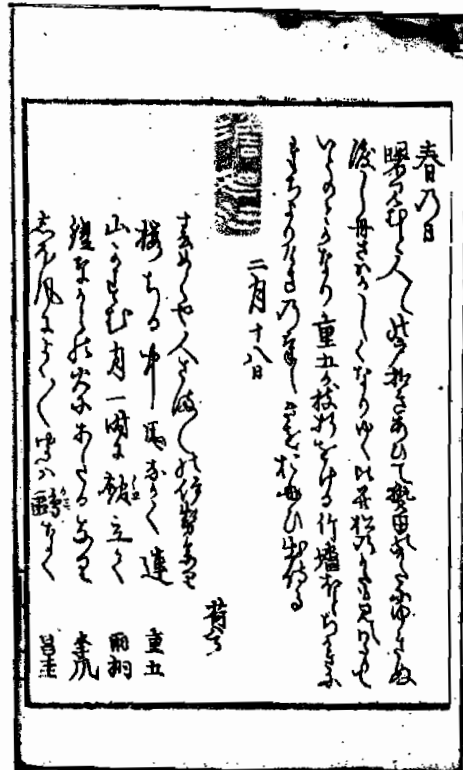 春乃日
曙見むと人々の戸扣きあひて熱田のかたにゆきぬ
渡し舟さはがしくなりゆく比并松のかたも見へわたりて
いとのどかなり重五が枝折をける竹墻ほどちかきに
たちよりけさ乃けしきをおもひ出侍る
二月十八日
春めくや人さま〲の伊勢まいり 荷兮
櫻ちる中馬ながく連 重五
山かすむ月一時に館立て 雨桐
鎧ながらの火にあたる也 李風
しほ風によく〱聞ば鴎なく 昌圭